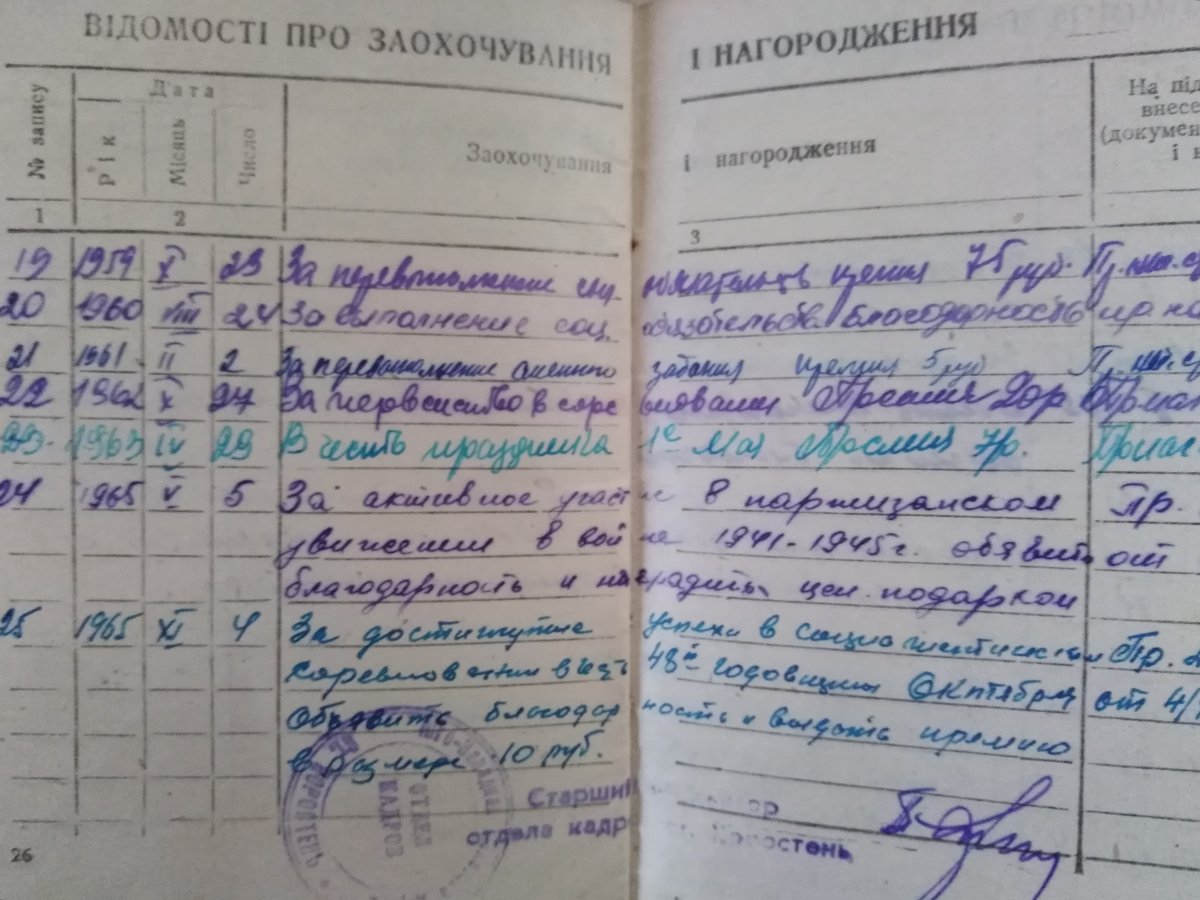 ВІДОМОСТІ ПРО ЗАОХОЧУВАННЯ І НАГОРОДЖЕННЯ
№ запису Дата Заохочування і нагородження На під
Рік Місяць Число внесе
(докумен
і н
1 2 3
19 1959 X 23 За перевыполнение соц. обязательств премия 75 руб. Пр.
20 1960 VIII 24 За выполнение соц. обязательств благодарность
21 1961 II 2 За перевыполнение сменного задания премия 5 руб Пр.
22 1962 X 27 За первенство в соревновании Премия Дор
23. 1963 IV 29 В честь праздника 1е Мая Премия 7р.
24 1965 V 5 За активное участие в партизанском Пр.
движении в войне 1941-1945г. объявить от
благодарность и наградить цен. подарком
25 1965 XI 4 За достигнутые успехи в социалистическом Пр.
соревновании в честь 48й годовщины Октября от 4/
Объявить благодарность и выдать премию
в размере 10 руб.
ОТДЕЛ
КАДРОВ
Старший
отдела кадров Коростень
26